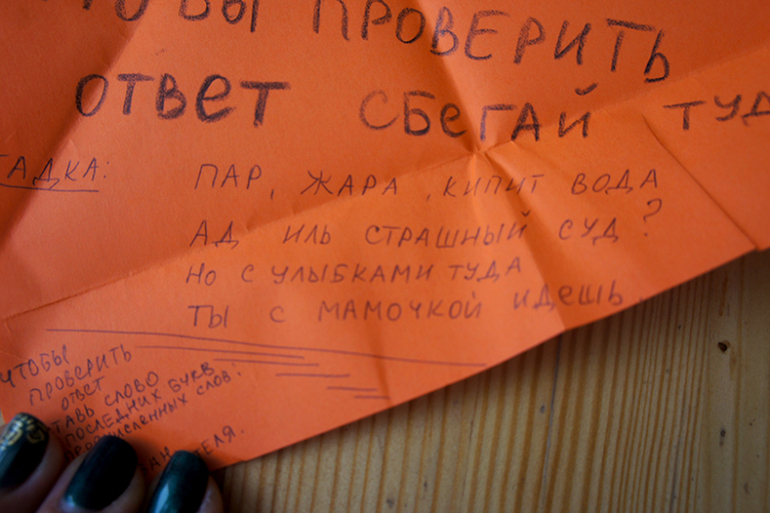 ПРОВЕРИТЬ
ОТВЕТ СБЕГАЙ
ПАР, ЖАРА, КИПИТ ВОДА
АД ИЛЬ СТРАШНЫЙ СУД?
НО С УЛЫБКАМИ ТУДА
ТЫ С МАМОЧКОЙ ИДЕШЬ.
ЧТОБЫ
ПРОВЕРИТЬ
ОТВЕТ
СЛОВО
ПОСЛЕДНИХ БУКВ
СЛОВ: